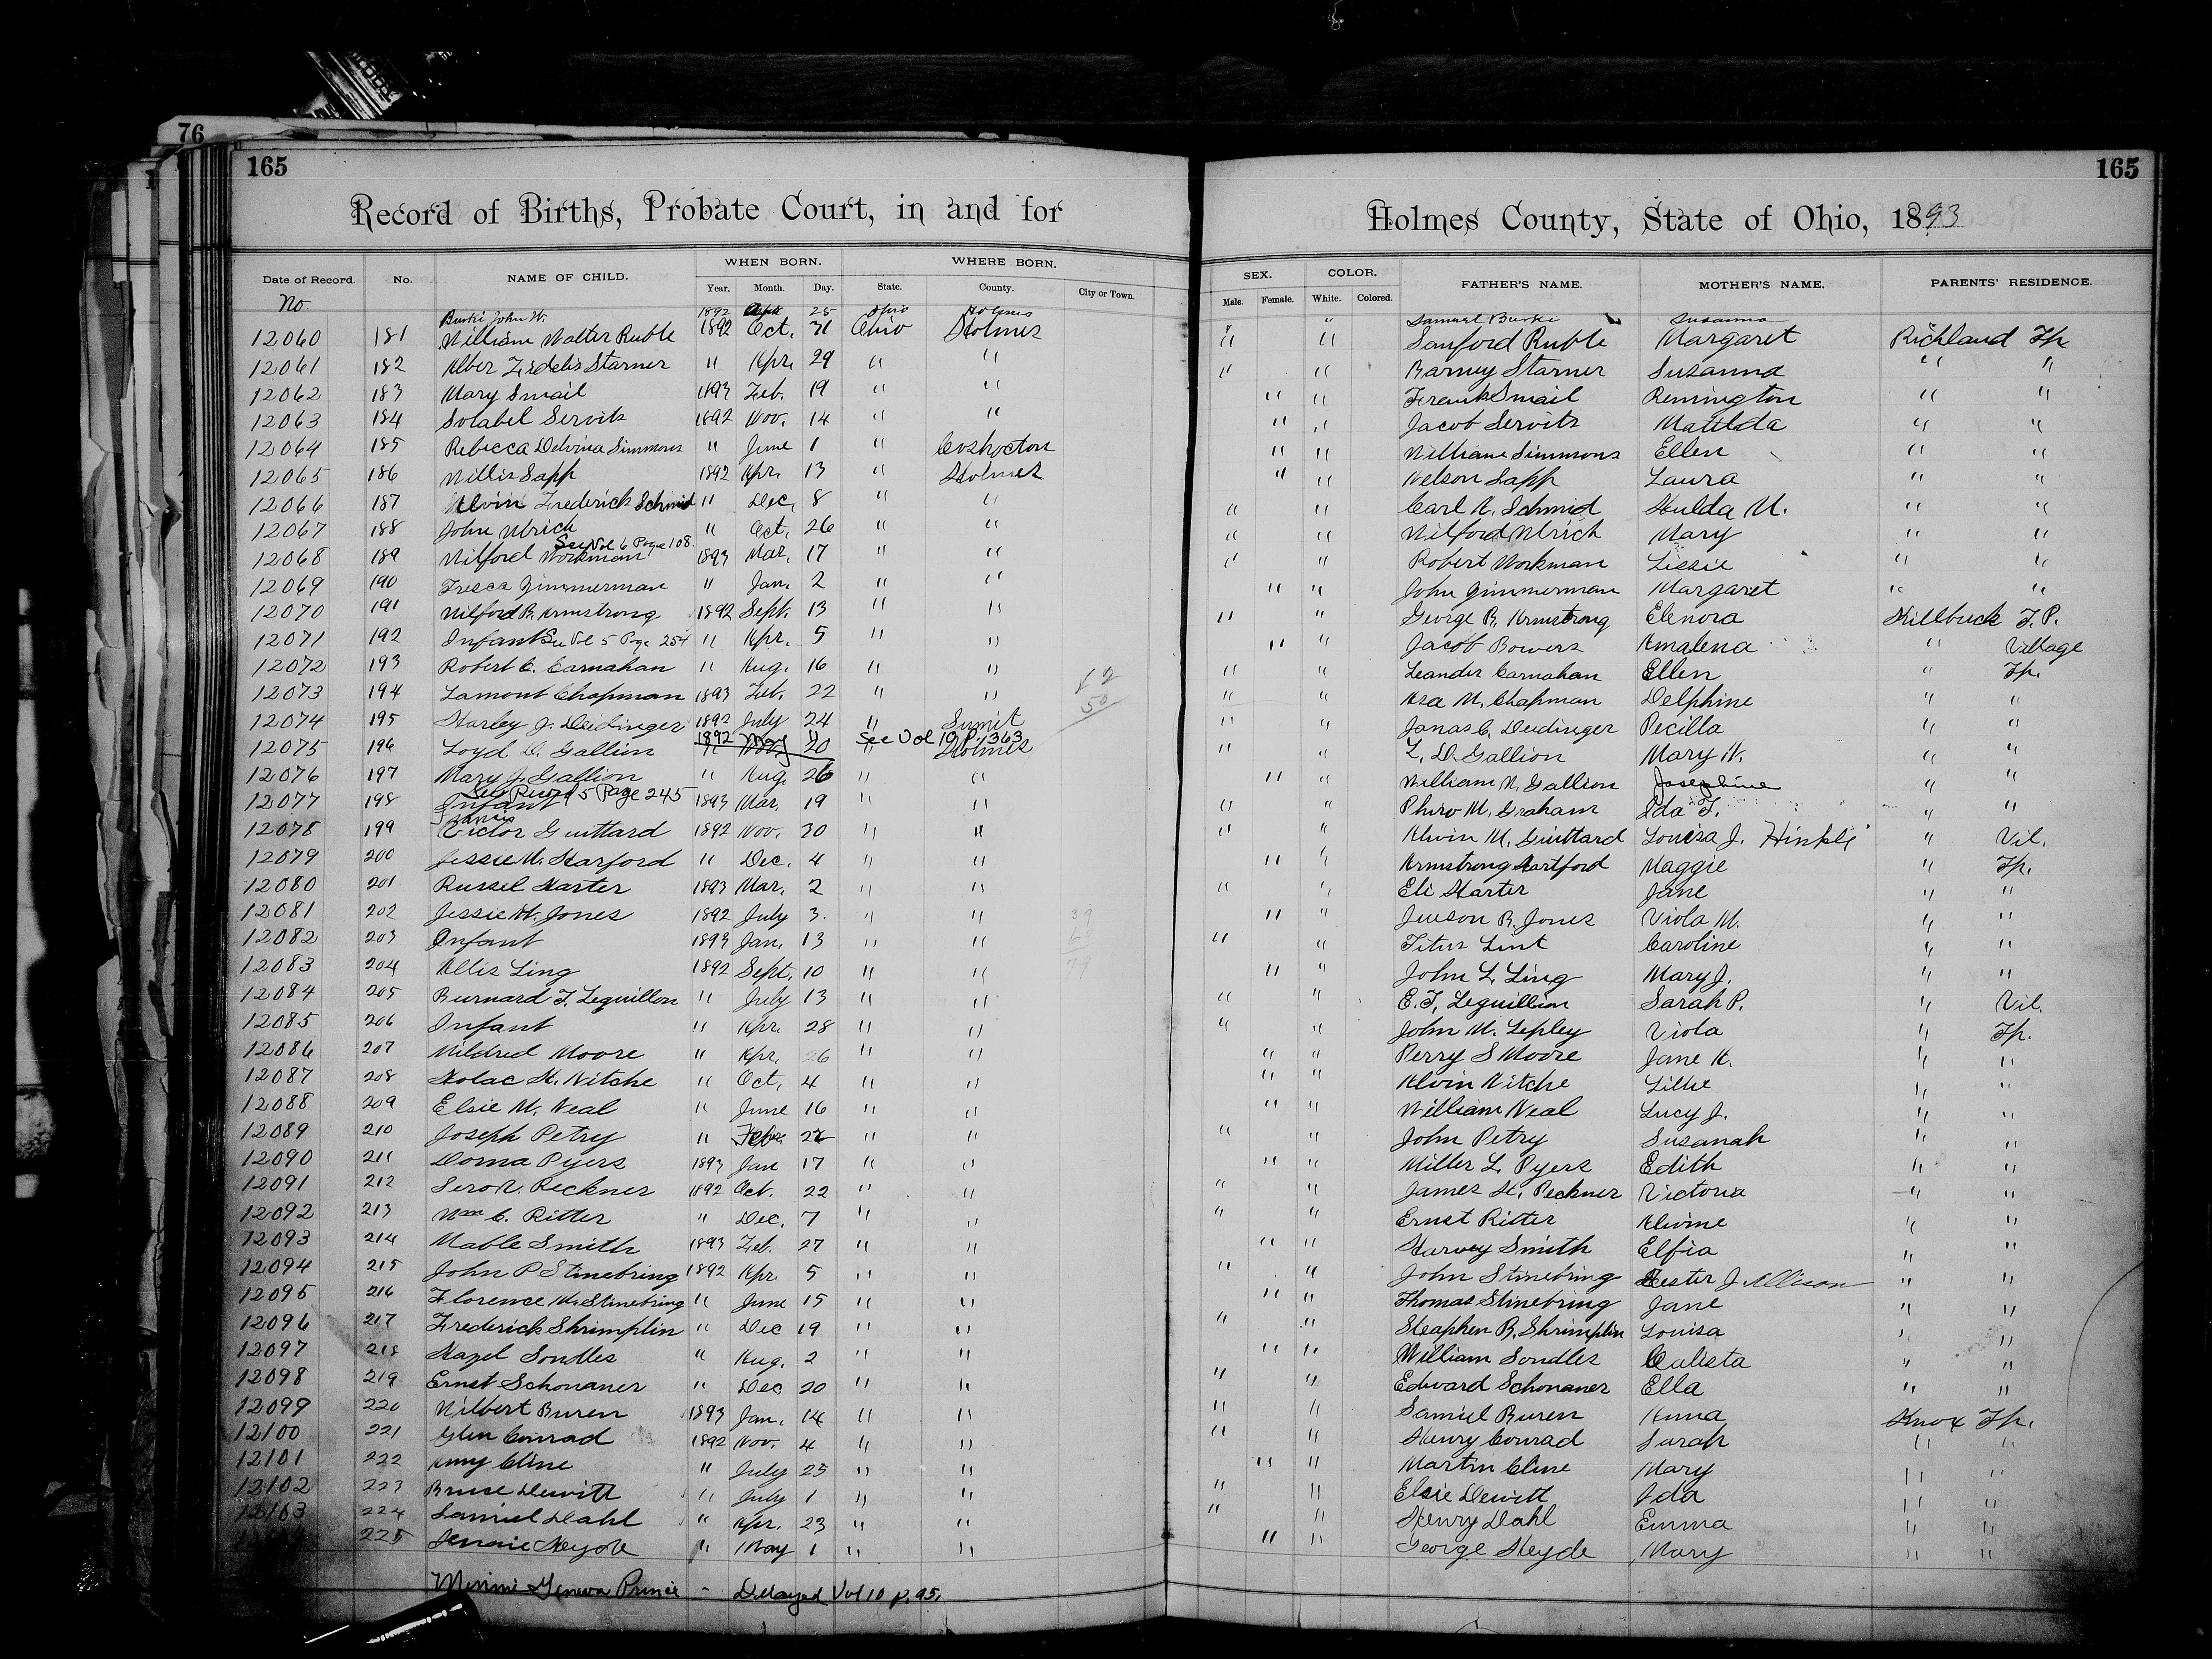 76
165
165
Record of Births, Probate Court, in and for Holmes County, State of Ohio, 1893
Date of Record. No. NAME OF CHILD. WHEN BORN. WHERE BORN. SEX. COLOR. FATHER'S NAME. MOTHER'S NAME. PARENTS' RESIDENCE.
Year. Month. Day. State. County. City or Town. Male. Female. White. Colored.
No.
Burki John W. 1892 25 Ohio Holmes " " Samuel Burki Susanna
12060 181 William Walter Ruble 1892 Oct. 31 Ohio Holmes " " Sanford Ruble Margaret Richland Tp.
12061 182 Alber Starner " Apr. 29 " " " " Barney Starner Susanna " "
12062 183 Mary Smail 1893 Feb. 19 " " " " Frank Smail Remington " "
12063 184 Servits 1892 Nov. 14 " " " " Jacob Servits Matilda " "
12064 185 Rebecca Simmons " June 1 " Coshocton " " William Simmons Ellen " "
12065 186 Willis Sapp 1892 Apr. 13 " Holmes " " Nelson Sapp Laura " "
12066 187 Alvin Frederick Schmid " Dec. 8 " " " " Carl A. Schmid Hulda M. " "
12067 188 John Ulrich " Oct. 26 " " " " Wilford Ulrich Mary " "
See Vol 6 Page 108.
12068 189 Wilford Workman 1893 Mar. 17 " " " " Robert Workman Lissie " "
12069 190 Fresca Zimmerman " Jan. 2 " " " " John Zimmerman Margaret " "
12070 191 Wilford B. Armstrong 1892 Sept. 13 " " " " George B. Armstrong Elenora Killbuck T.P.
12071 192 Infant See Vol 5 Page 254 " Apr. 5 " " " " Jacob Bowers Amalena " Village
12072 193 Robert C. Carnahan " Aug. 16 " " " " Leander Carnahan Ellen " Tp.
12073 194 Lamont Chapman 1893 Feb. 22 " " " " Asa M. Chapman Delphine " "
12074 195 Harley J. Deidinger 1892 July 24 " Sumit " " Janas C. Deidinger Pecilla " "
1892 May 11 See Vol 10 P. 363
12075 196 Loyd D. Gallion " Nov. 20 " Holmes " " L. D. Gallion Mary A. " "
12076 197 Mary J. Gallion " Aug. 26 " " " " William N. Gallion Josephine " "
See Record 5 Page 245
12077 198 Infant 1893 Mar. 19 " " " " Phiro M. Graham Ida F. " "
Francis
12078 199 Victor Guittard 1892 Nov. 30 " " " " Alvin M. Guittard Louisa J. Hinkle " Vil.
12079 200 Jessie M. Harford " Dec. 4 " " " " Armstrong Hartford Maggie " Tp.
12080 201 Russel Harter 1893 Mar. 2 " " " " Eli Harter Jane " "
12081 202 Jessie M. Jones 1892 July 3. " " " " Judson B. Jones Viola M. " "
12082 203 Infant 1893 Jan. 13 " " " " Titus Lint Caroline " "
12083 204 Allis Ling 1892 Sept. 10 " " " " John L. Ling Mary J. " "
12084 205 Burnard F. Leguillon " July 13 " " " " E. F. Leguillion Sarah P. " Vil.
12085 206 Infant " Apr. 28 " " " " John M. Lepley Viola " Tp.
12086 207 Mildred Moore " Apr. 26 " " " " Perry S Moore Jane A. " "
12087 208 Holac H. Nitche " Oct. 4 " " " " Alvin Nitche Lillie " "
12088 209 Elsie M. Neal " June 16 " " " " William Neal Lucy J. " "
12089 210 Joseph Petry " Feb. " " " " John Petry Susanah " "
12090 211 Dorna Pyers 1893 Jan 17 " " " " Miller L. Pyers Edith " "
12091 212 Reckner 1892 Oct. 22 " " " " James H. Peckner Victoria " "
12092 213 Wm C. Ritter " Dec. 7 " " " " Ernst Ritter Alvine " "
12093 214 Mable Smith 1893 Feb. 27 " " " " Harvey Smith Elfia " "
12094 215 John P Stinebring 1892 Apr. 5 " " " " John Stinebring Hester J. Allison " "
12095 216 Florence M. Stinebring " June 15 " " " " Thomas Stinebring Jane " "
12096 217 Frederick Shrimplin " Dec 19 " " " " Steaphen B. Shrimplin Louisa " "
12097 218 Hazel Sondles " Aug. 2 " " " " William Sondles Calista " "
12098 219 Ernst Schonauer " Dec 20 " " " " Edward Schonauer Ella " "
12099 220 Wilbert Buren 1893 Jan. 14 " " " " Samuel Buren Anna Knox Tp.
12100 221 Glen Conrad 1892 Nov. 4 " " " " Henry Conrad Sarah " "
12101 222 Amy Cline " July 25 " " " " Martin Cline Mary " "
12102 223 Bruce Dewitt " July 1 " " " " Elsie Dewitt Ida " "
12103 224 Samuel Dahl " Apr. 23 " " " " Henry Dahl Emma " "
225 Jennie Heyde " May 1 " " " " George Heyde Mary " "
Minnie Geneva Prince - Delayed Vol 10 p. 95.